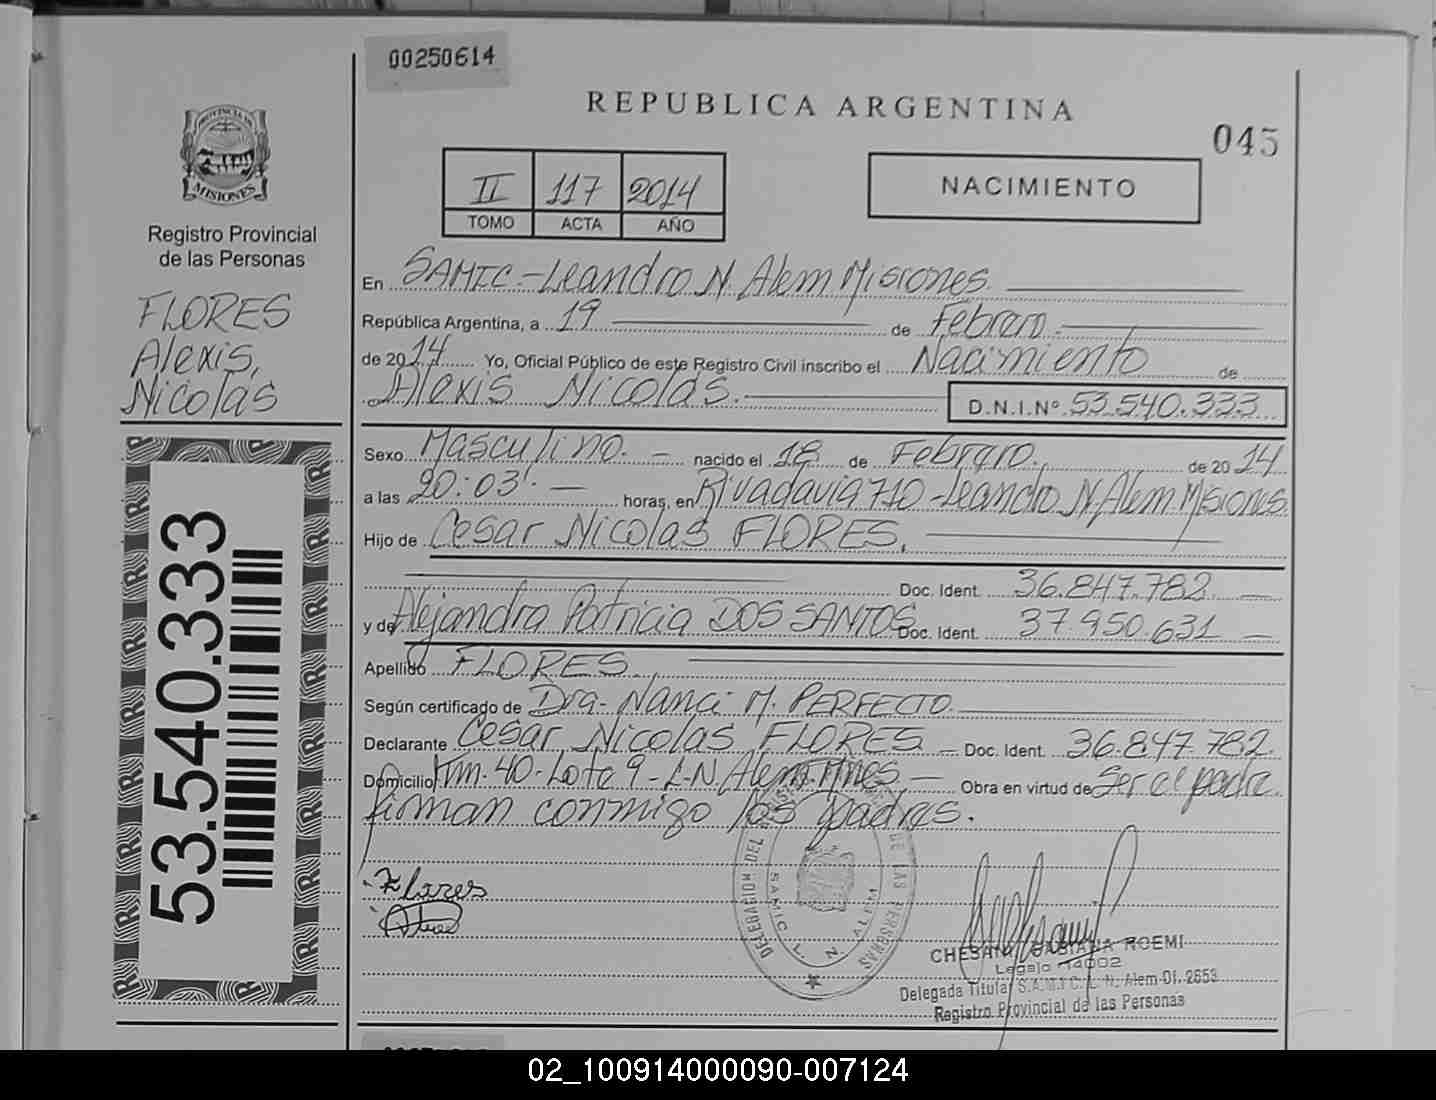 00250614
REPUBLICA ARGENTINA
045
PROVINCIA DE
MISIONES
Registro Provincial
de las Personas
FLORES
Alexis,
Nicolás
II 117 2014
TOMO ACTA AÑO
NACIMIENTO
En SAMIC-Leandro N. Alem Misiones
República Argentina, a 19 de Febrero
de 2014 Yo, Oficial Público de este Registro Civil inscribo el Nacimiento de
Alexis Nicolás. D.N.I.Nº 53.540.333
Sexo Masculino. nacido el 18 de Febrero. de 2014
a las 20:03'. horas, en Rivadavia 710-Leandro N Alem Misiones
Hijo de Cesar Nicolas FLORES,
Doc. Ident. 36.847.782
y de Alejandra Patricia DOS SANTOS Doc. Ident. 37.950.631
Apellido FLORES.
Según certificado de Dra. Nanci M. PERFECTO
Declarante Cesar Nicolas FLORES Doc. Ident. 36.847.782.
Domicilio Km. 40-Lote 9-L.N. Alem Mnes Obra en virtud de Ser el padre.
firman conmigo los padres.
53.540.333
Flores
DELEGACION DEL DE LAS PERSONAS
SAMIC L. N. ALEM
CHESANI FABIANA NOEMI
Legajo 14002
Delegada Titular S.A.M.I.C. L. N. Alem Of. 2653
Registro Provincial de las Personas
02_100914000090-007124